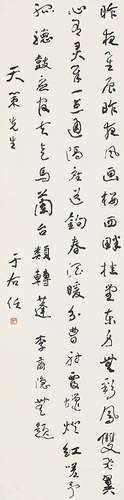 昨夜星辰昨夜風画樓西畔桂堂東身無彩鳳雙飛翼
心有灵犀一点通隔座送鉤春酒暖分曹射覆蠟燈紅嗟余
聽鼓應官去走馬蘭台類轉蓬 李商隱無題
天策先生
于右任